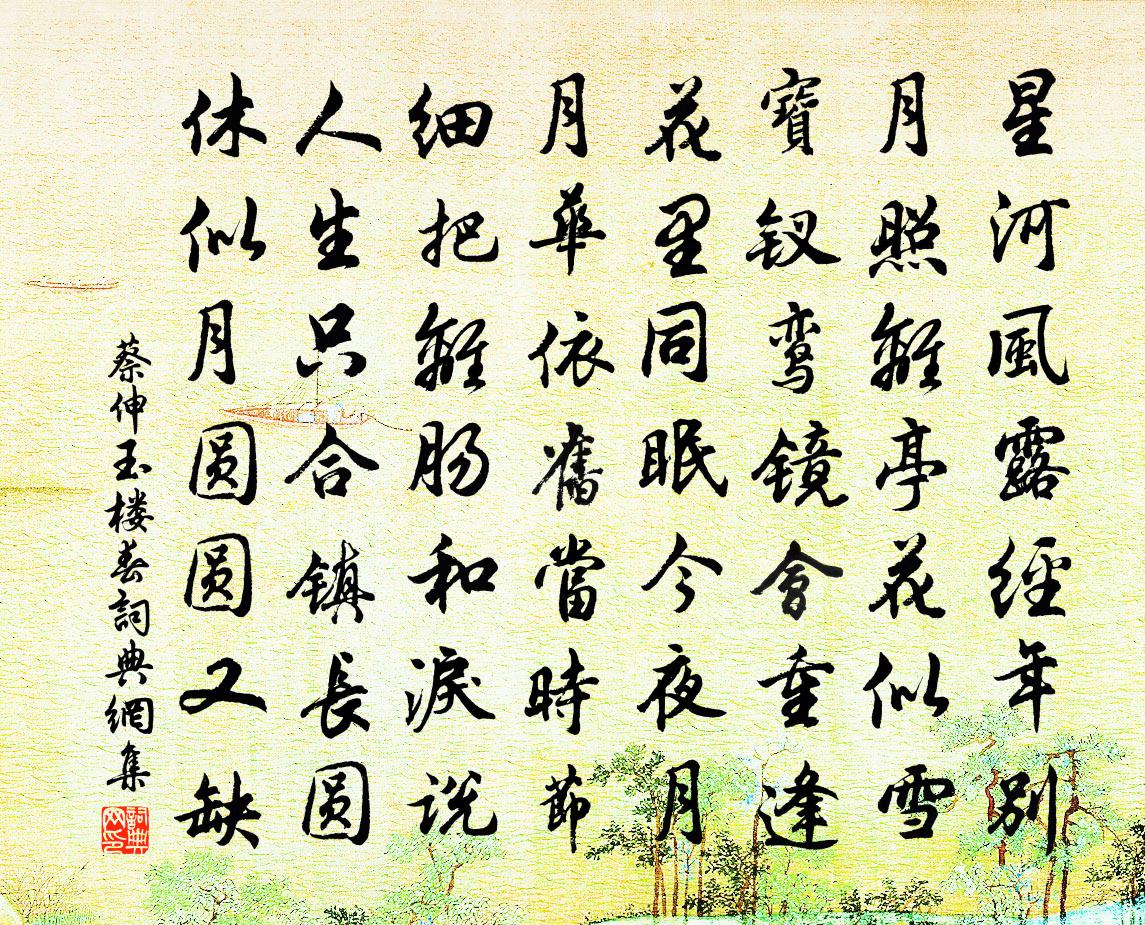 星河風露經年別
月照離亭花似雪
寶钗鸾镜會重逢
花里同眠今夜月
月華依舊當時節
細把離肠和淚说
人生只合镇長圆
休似月圆圆又缺
蔡伸玉楼春詞典網集
詞典网印